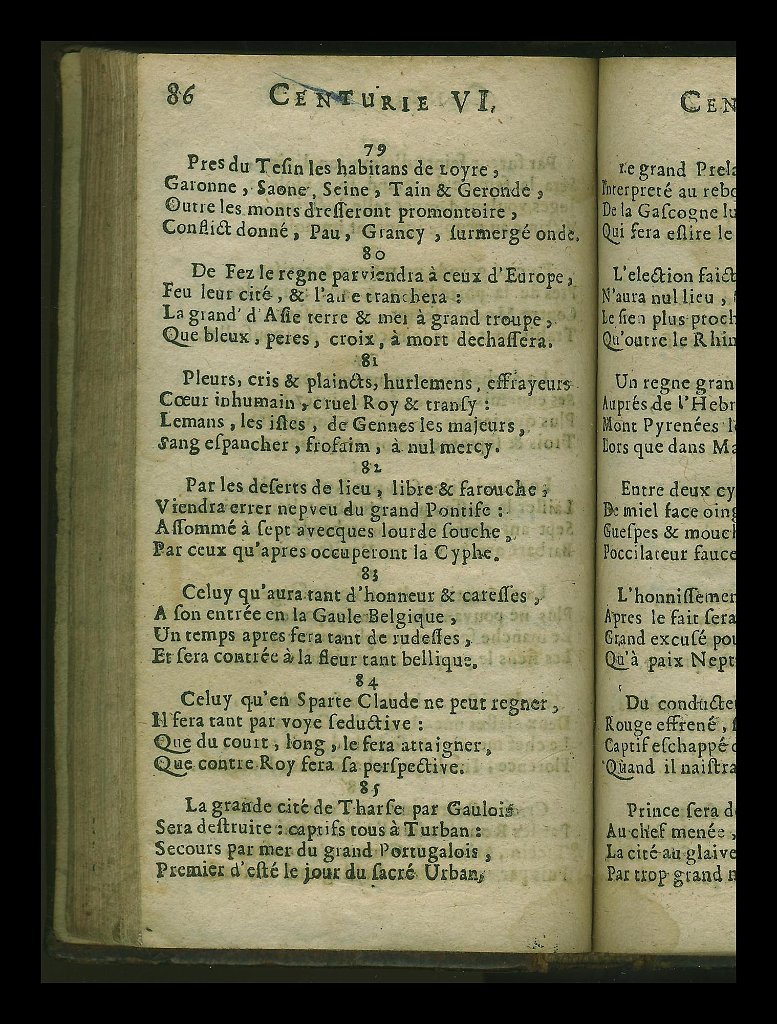 86 CENTURIE VI.
79
Pres du Teſin les habitans de Loyre,
Garonne, Saone, Seine, Tain & Geronde,
Outre les monts dreſſeront promontoire,
Conflict donné, Pau, Grancy, ſurmergé onde.
80
De Fez le regne parviendra à ceux d'Europe,
Feu leur cité, & l'ame tranchera :
La grand' d'Aſie terre & mer à grand troupe,
Que bleux, peres, croix, à mort dechaſſera.
81
Pleurs, cris & plaincts, hurlemens, effrayeurs
Cœur inhumain, cruel Roy & tranſy :
Lemans, les iſles, de Gennes les majeurs,
Sang eſpancher, froſaim, à nul mercy.
82
Par les deſerts de lieu, libre & farouche,
Viendra errer nepveu du grand Pontife :
Aſſommé à ſept avecques lourde ſouche,
Par ceux qu'apres occuperont la Cyphe.
83
Celuy qu'aura tant d'honneur & careſſes,
A ſon entrée en la Gaule Belgique,
Un temps apres fera tant de rudeſſes,
Et ſera contrée à la fleur tant bellique.
84
Celuy qu'en Sparte Claude ne peut regner,
Il fera tant par voye ſeductive :
Que du court, long, le fera attaigner,
Que contre Roy fera ſa perſpective.
85
La grande cité de Tharſe par Gaulois
Sera deſtruite : captifs tous à Turban :
Secours par mer du grand Portugalois,
Premier d'eſté le jour du ſacré Urban,
CEN
Le grand Prela
Interpreté au rebo
De la Gaſcogne lu
Qui fera eſlire le
L'election faict
N'aura nul lieu,
Le ſien plus proch
Qu'outre le Rhin
Un regne gran
Auprés de l'Hebr
Mont Pyrenées l
Lors que dans Ma
Entre deux cy
De miel face oing
Gueſpes & mouch
Poccilateur fauce
L'honniſſemen
Apres le fait ſera
Grand excuſé pou
Qu'à paix Nept
Du conducte
Rouge effrené,
Captif eſchappé
Quand il naiſtra
Prince ſera d
Au chef menée,
La cité au glaive
Par trop grand